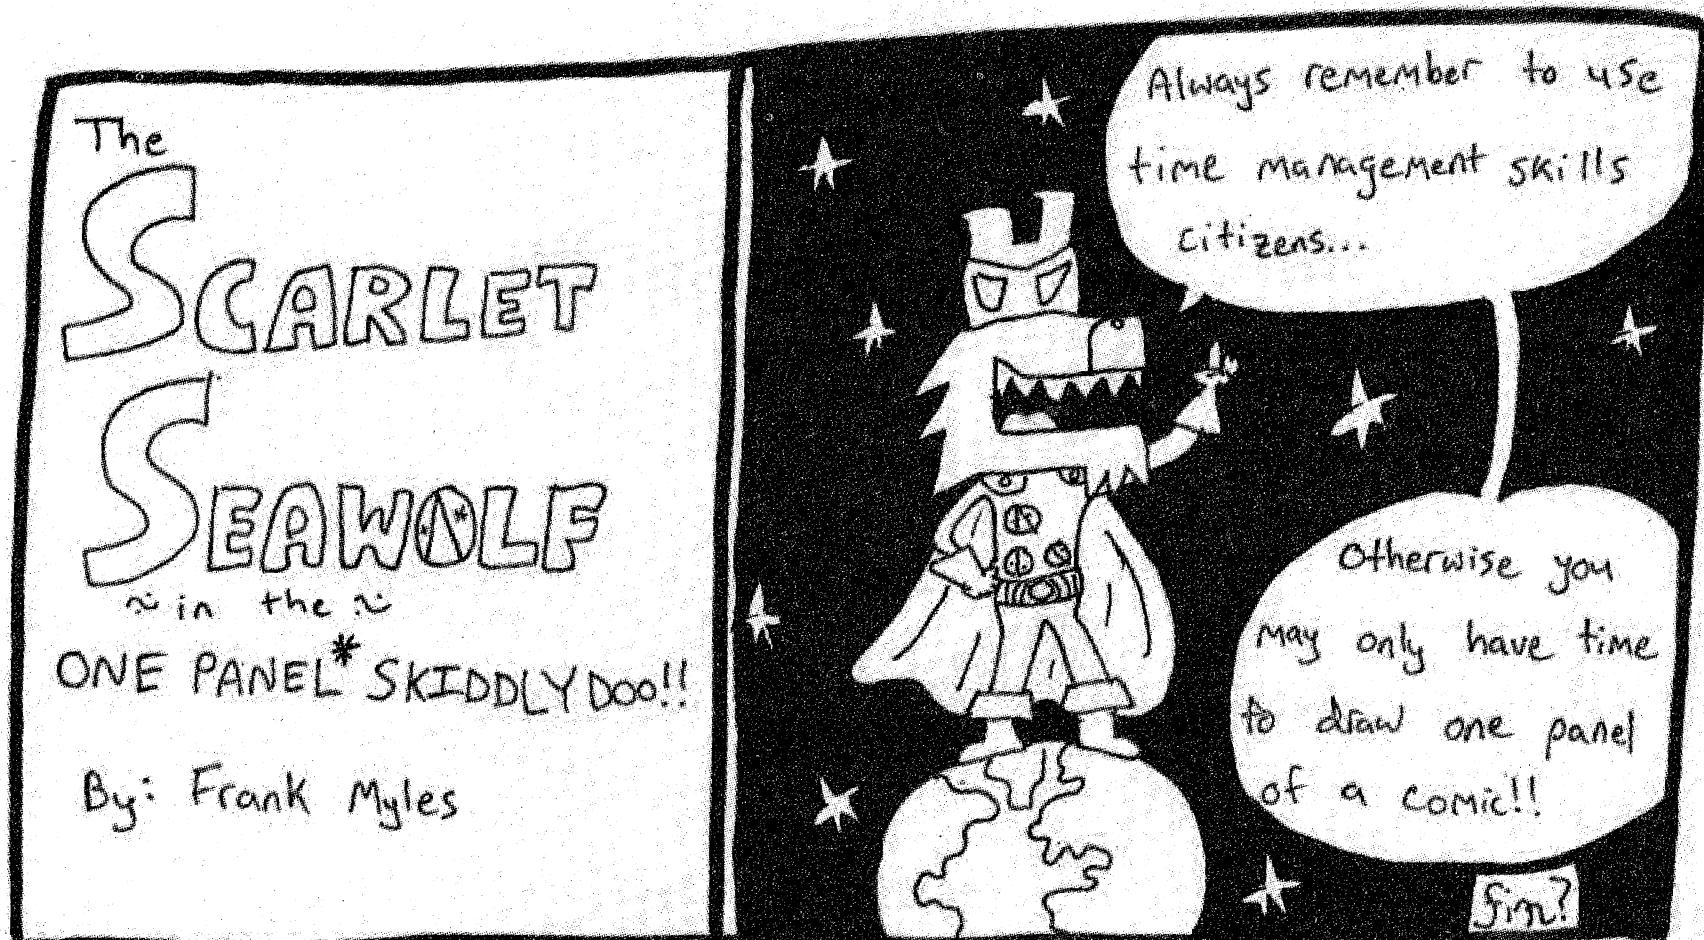 The
SCARLET
SEAWOLF
~ in the ~
ONE PANEL* SKIDDLYDOO!!
By: Frank Myles
Always remember to use
time management skills
citizens...
Otherwise you
may only have time
to draw one panel
of a comic!!
fin?